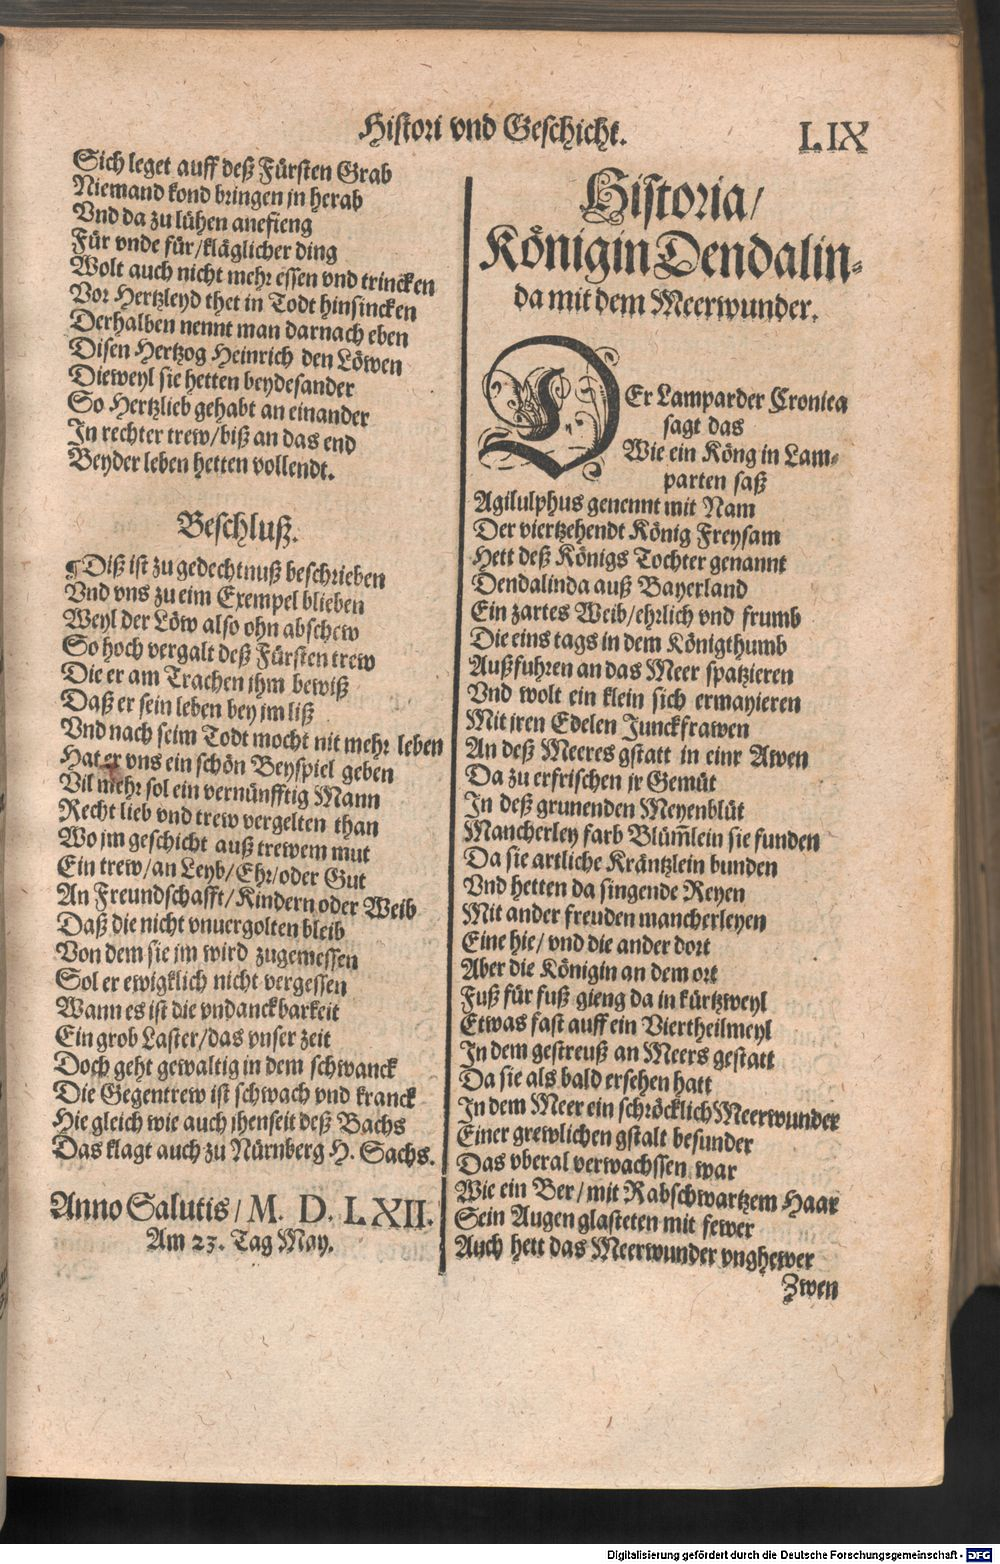 Histori vnd Geschicht.
LIX
Sich leget auff deß Fürsten Grab
Niemand kond bringen jn herab
Vnd da zu lühen anefieng
Für vnde für/kläglicher ding
Wolt auch nicht mehr essen vnd trincken
Vor Hertzleyd thet in Todt hinsincken
Derhalben nennt man darnach eben
Disen Hertzog Heinrich den Löwen
Dieweyl sie hetten beydesander
So Hertzlieb gehabt an einander
In rechter trew/biß an das end
Beyder leben hetten vollendt.
Beschluß.
Diß ist zu gedechtnuß beschrieben
Vnd vns zu eim Exempel blieben
Weyl der Löw also ohn abschew
So hoch vergalt deß Fürsten trew
Die er am Trachen jhm bewiß
Daß er sein leben bey jm liß
Vnd nach seim Todt mocht nit mehr leben
Hat er vns ein schön Beyspiel geben
Vil mehr sol ein vernünfftig Mann
Recht lieb vnd trew vergelten than
Wo jm geschicht auß trewem mut
Ein trew/an Leyb/Ehr/oder Gut
An Freundschafft/Kindern oder Weib
Daß die nicht vnuergolten bleib
Von dem sie jm wird zugemessen
Sol er ewigklich nicht vergessen
Wann es ist die vndanckbarkeit
Ein grob Laster/das vnser zeit
Doch geht gewaltig in dem schwanck
Die Gegentrew ist schwach vnd kranck
Hie gleich wie auch jhenseit deß Bachs
Das klagt auch zu Nürnberg H. Sachs.
Anno Salutis/M. D. LXII.
Am 23. Tag May.
Historia/
Königin Dendalin-
da mit dem Meerwunder.
DEr Lamparder Cronica
sagt das
Wie ein Köng in Lam-
parten saß
Agilulphus genennt mit Nam
Der viertzehendt König Freysam
Hett deß Königs Tochter genannt
Dendalinda auß Bayerland
Ein zartes Weib/ehrlich vnd frumb
Die eins tags in dem Königthumb
Außfuhren an das Meer spatzieren
Vnd wolt ein klein sich ermayieren
Mit jren Edelen Junckfrawen
An deß Meeres gstatt in einr Awen
Da zu erfrischen jr Gemüt
In deß grunenden Meyenblüt
Mancherley farb Blüm̃lein sie funden
Da sie artliche Kräntzlein bunden
Vnd hetten da singende Reyen
Mit ander freuden mancherleyen
Eine hie/ vnd die ander dort
Aber die Königin an dem ort
Fuß für fuß gieng da in kürtzweyl
Etwas fast auff ein Viertheilmeyl
In dem gestreuß an Meers gestatt
Da sie als bald ersehen hatt
In dem Meer ein schröcklich Meerwunder
Einer grewlichen gstalt besunder
Das vberal verwachssen war
Wie ein Ber/mit Rabschwartzem Haar
Sein Augen glasteten mit fewer
Auch hett das Meerwunder vnghewer
Zwen
Digitalisierung gefördert durch die Deutsche Forschungsgemeinschaft - DFG